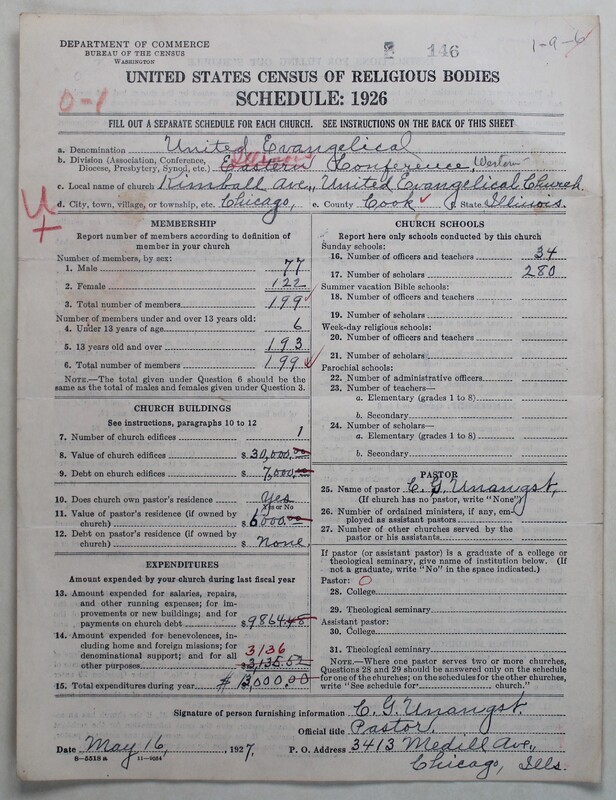 DEPARTMENT OF COMMERCE
BUREAU OF THE CENSUS
WASHINGTON
146
1-9-6
UNITED STATES CENSUS OF RELIGIOUS BODIES
SCHEDULE: 1926
0-1
FILL OUT A SEPARATE SCHEDULE FOR EACH CHURCH. SEE INSTRUCTIONS ON THE BACK OF THIS SHEET
a. Denomination United Evangelical
b. Division (Association, Conference, Diocese, Presbytery, Synod, etc.) Eastern Illinois Conference, Western
c. Local name of church Kimball Ave., United Evangelical Church.
d. City, town, village, or township, etc. Chicago, e. County Cook f. State Illinois.
U
+
MEMBERSHIP
Report number of members according to definition of
member in your church
Number of members, by sex:
1. Male 77
2. Female 122
3. Total number of members 199
Number of members under and over 13 years old:
4. Under 13 years of age 6
5. 13 years old and over 193
6. Total number of members 199
NOTE.—The total given under Question 6 should be the
same as the total of males and females given under Question 3.
CHURCH BUILDINGS
See instructions, paragraphs 10 to 12
7. Number of church edifices 1
8. Value of church edifices $ 30,000.00
9. Debt on church edifices $ 7,000.00
10. Does church own pastor's residence Yes
Yes or No
11. Value of pastor's residence (if owned by
church) $ 6000.00
12. Debt on pastor's residence (if owned by
church) $ None
EXPENDITURES
Amount expended by your church during last fiscal year
13. Amount expended for salaries, repairs,
and other running expenses; for im-
provements or new buildings; and for
payments on church debt $ 9864.48
14. Amount expended for benevolences, in-
cluding home and foreign missions; for
denominational support; and for all
other purposes 3136
$ 3,135.52
15. Total expenditures during year $ 13,000.00
CHURCH SCHOOLS
Report here only schools conducted by this church
Sunday schools:
16. Number of officers and teachers 34
17. Number of scholars 280
Summer vacation Bible schools:
18. Number of officers and teachers
19. Number of scholars
Week-day religious schools:
20. Number of officers and teachers
21. Number of scholars
Parochial schools:
22. Number of administrative officers
23. Number of teachers—
a. Elementary (grades 1 to 8)
b. Secondary
24. Number of scholars—
a. Elementary (grades 1 to 8)
b. Secondary
PASTOR
25. Name of pastor C. G. Unangst,
(If church has no pastor, write "None")
26. Number of ordained ministers, if any, em-
ployed as assistant pastors
27. Number of other churches served by the
pastor or his assistants
If pastor (or assistant pastor) is a graduate of a college or
theological seminary, give name of institution below. (If
not a graduate, write "No" in the space indicated.)
Pastor: 0
28. College
29. Theological seminary
Assistant pastor:
30. College
31. Theological seminary
NOTE.—Where one pastor serves two or more churches,
Questions 28 and 29 should be answered only on the schedule
for one of the churches; on the schedules for the other churches,
write "See schedule for church."
Signature of person furnishing information C. G. Unangst.
Official title Pastor.
Date May 16, 1927. P. O. Address 3413 Medill Ave.,
8-5518 a 11-9054 Chicago, Ills.